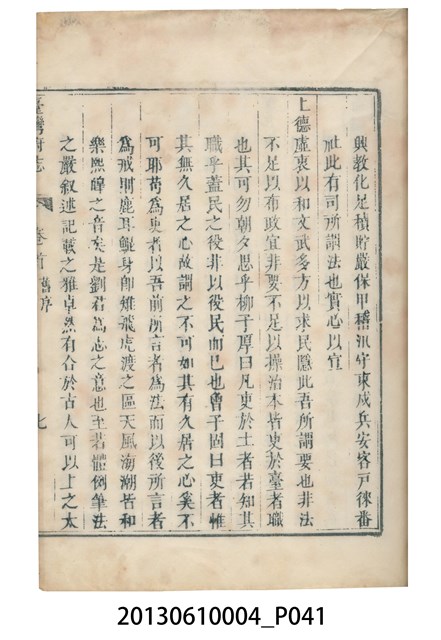 興教化足積貯嚴保甲稽汛守東戍兵安客戶徠番
社此有可所謂法也實心以宜
上德虛衷以和文武多方以求民隱此吾所謂要也非法
不足以布政宜非要不足以操治本皆吏於臺者職
也其可勿朝夕思乎柳子厚曰凡吏於土者若知其
職乎蓋民之役非以役民而已也曾子固曰吏者惟
其無久居之心故謂之不可如其有久居之心奚不
可耶苟為吏者以吾前所言者為法而以後所言者
為戒則鹿耳鯤身卽雉飛虎渡之區天風海潮皆和
樂熙皞之音矣是劉君為志之意也至若體例筆法
之嚴叙述記載之雅卓然有合於古人可以上之太
臺灣府志 卷首 舊序 七
20130610004_P041